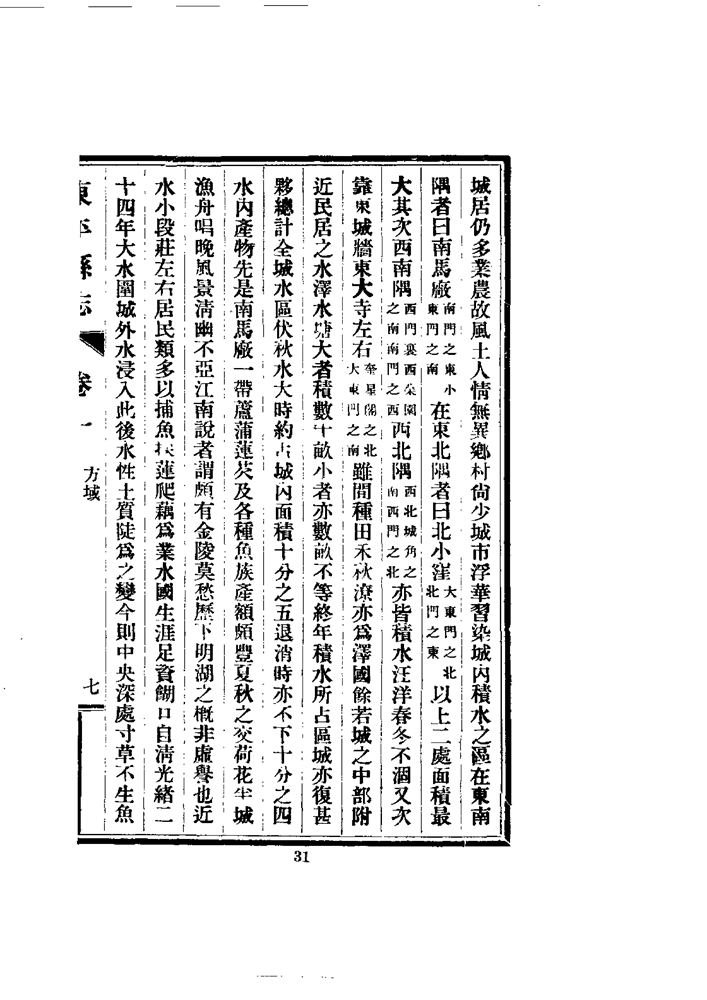 城居仍多業農故風土人情無異鄉村尙少城市浮華習染城內積水之區在東南
隅者曰南馬廠南門之東小東門之南在東北隅者曰北小窪大東門之北北門之東以上二處面積最
大其次西南隅西門裏西菜園之南南門之西西北隅西北城角之南西門之北亦皆積水汪洋春冬不涸又次
靠東城牆東大寺左右奎星閣之北大東門之南雖間種田禾秋潦亦爲澤國餘若城之中部附
近民居之水澤水塘大者積數十畝小者亦數畝不等終年積水所占區城亦復甚
夥總計全城水區伏秋水大時約占城內面積十分之五退消時亦不下十分之四
水內產物先是南馬廠一帶蘆蒲蓮芡及各種魚族產額頗豐夏秋之交荷花半城
漁舟唱晚風景淸幽不亞江南說者謂頗有金陵莫愁歷下明湖之概非虛譽也近
水小段莊左右居民類多以捕魚採蓮爬藕爲業水國生涯足資餬口自淸光緒二
十四年大水圍城外水浸入此後水性土質陡爲之變今則中央深處寸草不生魚
東平縣志 卷一 方域 七
31